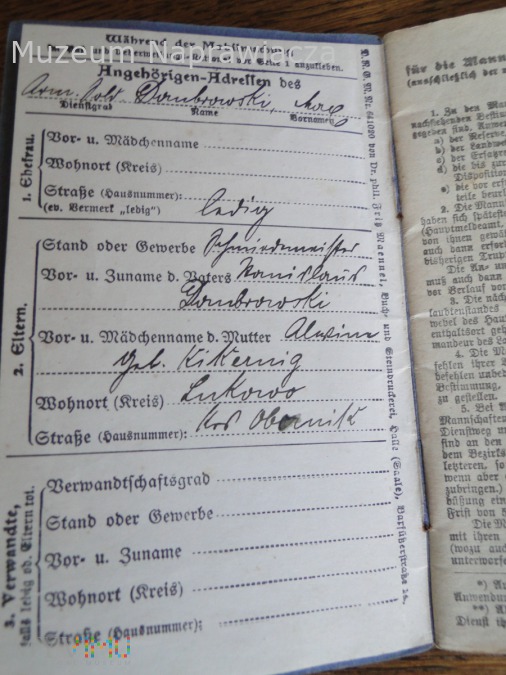 Muzeum Naprawiacza
Während der Mobilmachung
anzukleben.
Angehörigen-Adressen des
Arm. Sold. Dombrowski, Max
Dienstgrad Name Vorname
1. Ehefrau.
Vor- u. Mädchenname
Wohnort (Kreis)
Straße (Hausnummer):
(ev. Vermerk „ledig") ledig
2. Eltern.
Stand oder Gewerbe Schmiedemeister
Vor- u. Zuname d. Vaters Stanislaus
Dombrowski
Vor- u. Mädchenname d. Mutter Alwine
geb.
Wohnort (Kreis) Lukowo
Straße (Hausnummer): Krs Obornik
3. Verwandte,
falls ledig od. Eltern tot.
Verwandtschaftsgrad
Stand oder Gewerbe
Vor- u. Zuname
Wohnort (Kreis)
Straße (Hausnummer):
von Dr. phil. Fritz Maennel, Buch- und Steindruckerei, Halle (Saale), Barfüßerstraße
für die Mann
(ausschließlich der
1. Zu den Man
nachstehenden Bestim
gegeben sind.
a) der Reserve
b) der Landwe
c) der Ersatzre
d) die bis zur
Disposition
e) die vor erf
teile beurl
2. Die Mann
haben sich späteste
(Hauptmeldeamt.
von ihnen gewäh
auch dann erford
bisherigen Trup
Die An- un
muß auch dann
vor Verlauf vo
3. Die näch
laubtenstandes
webel des Hau
enthaltsort geh
mandeur des La
4. Die M
fehlen ihrer
befehlen unbed
Bestimmung,
zu gestellen.
5. Bei
Mannschaften
Dienstweg u
find an den
dem Bezirks
letzteren, so
wenn aber
zubringen.)
büßung eine
Frist von 5
Die M
mit ihren
(wozu auch
unterworfe
*) Au
Anwendun
**)
Dienst ih